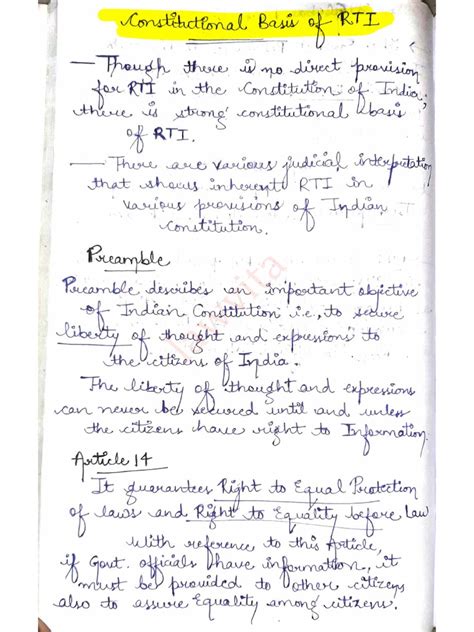 Constitutional Basis of RTI
— Though there is no direct provision
for RTI in the Constitution of India;
there is strong constitutional basis
of RTI.
— There are various judicial interpretation
that shows inherent RTI in
various provisions of Indian
Constitution.
Preamble
Preamble describes an important objective
of Indian Constitution i.e., to secure
liberty of thought and expressions to
the citizens of India.
The liberty of thought and expressions
can never be secured until and unless
the citizens have right to Information
Article 14
It guarantees Right to Equal Protection
of laws and Right to Equality before Law
With reference to this Article,
if Govt. officials have information, it
must be provided to other citizens
also to assure Equality among citizens.